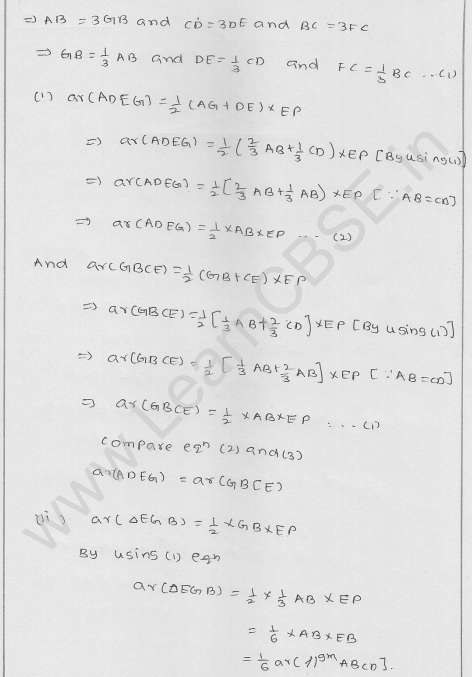 ⇒ AB = 3GB and CD = 3DE and BC = 3FC
⇒ GB = 1/3 AB and DE = 1/3 CD and FC = 1/3 BC ... (1)
(1) ar(ADEG) = 1/2 (AG + DE) × EP
⇒ ar(ADEG) = 1/2 (2/3 AB + 1/3 CD) × EP [By using (1)]
⇒ ar(ADEG) = 1/2 [2/3 AB + 1/3 AB) × EP [∵ AB = CD]
⇒ ar(ADEG) = 1/2 × AB × EP ... (2)
And ar(GBCE) = 1/2 (GB + CE) × EP
⇒ ar(GBCE) = 1/2 [1/3 AB + 2/3 CD] × EP [By using (1)]
⇒ ar(GBCE) = 1/2 [1/3 AB + 2/3 AB] × EP [∵ AB = CD]
⇒ ar(GBCE) = 1/2 × AB × EP ... (1)
Compare eqn (2) and (3)
ar(ADEG) = ar(GBCE)
(ii) ar(ΔEGB) = 1/2 × GB × EP
By using (1) eqn
ar(ΔEGB) = 1/2 × 1/3 AB × EP
= 1/6 × AB × EB
= 1/6 ar(||gm ABCD].
www.LearnCBSE.in